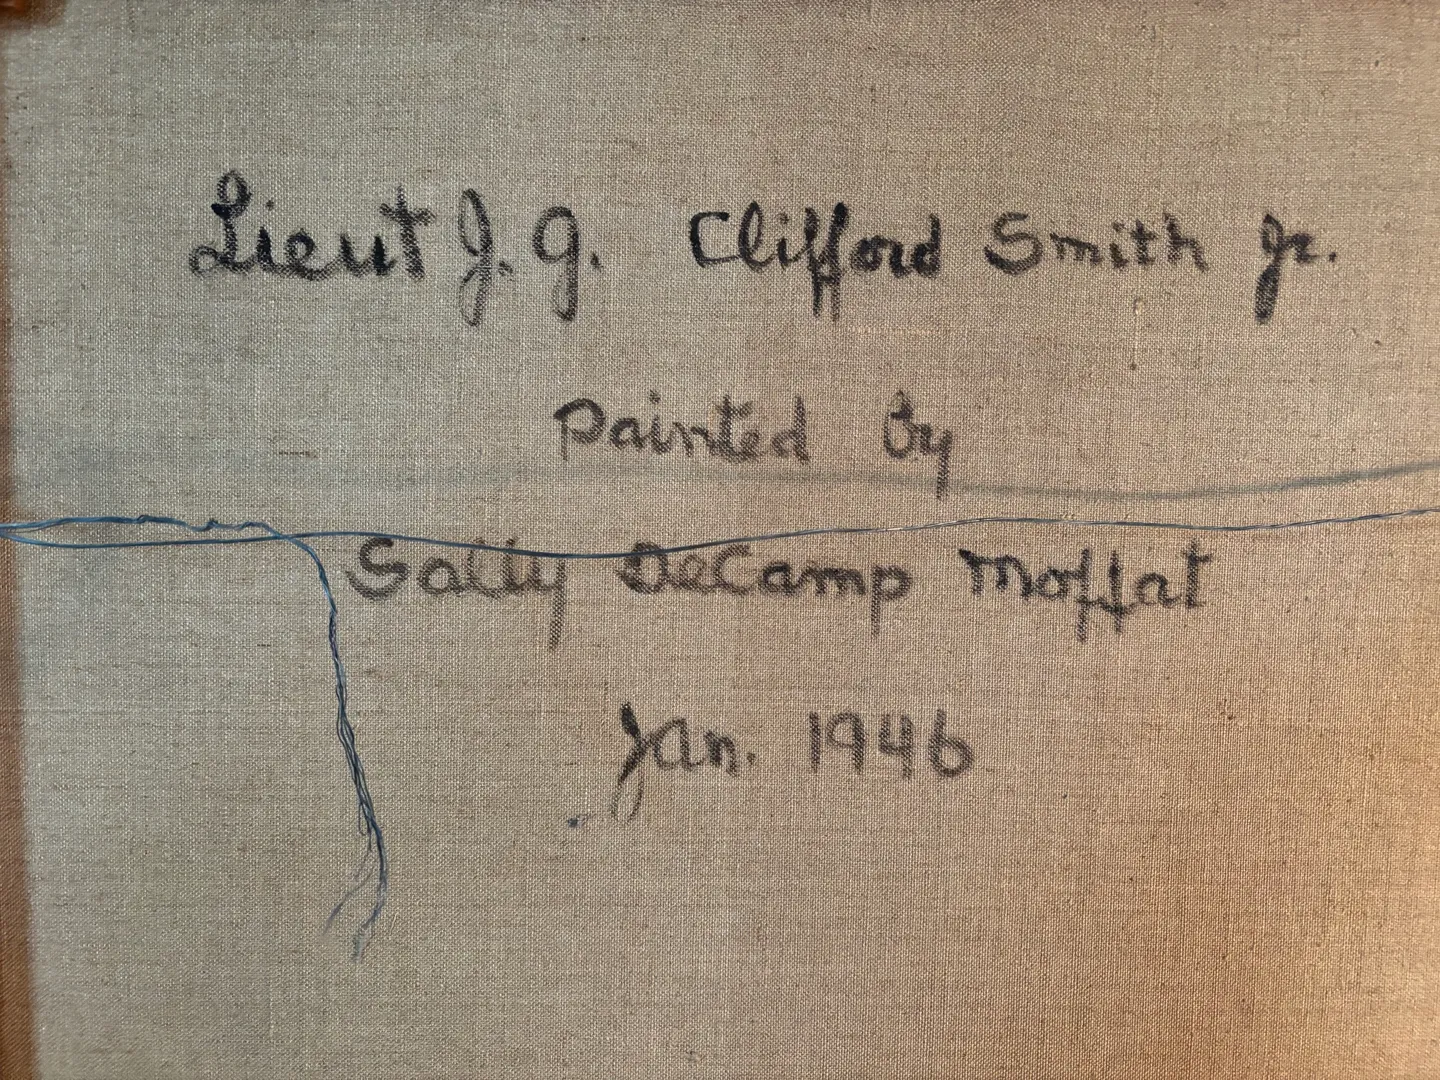 Lieut J. g. Clifford Smith Jr.
Painted by
Sally DeCamp Moffat
Jan. 1946